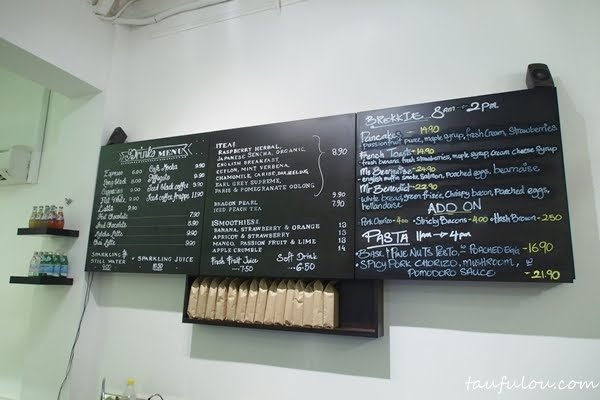 Drinks MENU
Espresso 6.90
Long black
Cappuccino
Flat White
Latte
Hot Chocolate
Iced Chocolate
Chai Latte
Café Mocha 9.90
Affogato 9.90
Iced black coffee 9.90
Iced coffee frappe 11.90
7.90
9.90
9.90
9.90
SPARKLING & STILL WATER 9.00
SPARKLING JUICE
ITEAS
RASPBERRY HERBAL,
JAPANESE SENCHA, ORGANIC,
ENGLISH BREAKFAST,
CEYLON, MINT VERBENA,
CHAMOMILE,
EARL GREY SUPREME,
PARIS & POMEGRANATE OOLONG
8.90
DRAGON PEARL 9.90
ICED PEACH TEA 7.90
ISMOOTHIES
BANANA, STRAWBERRY & ORANGE 13
APRICOT & STRAWBERRY 13
MANGO, PASSION FRUIT & LIME 13
APPLE CRUMBLE 14
Fresh Fruit Juice 7.50
Soft Drink 6.50
BREKKIE 8am → 2pm
Pancakes - 19.90
passionfruit puree, maple syrup, fresh cream, strawberries
French Toast - 19.90
fresh banana, fresh strawberries, maple syrup, cream cheese
Mr Bearnaise - 24.90
english muffin, smoke salmon, poached eggs, bearnaise
Mr Benedict - 22.90
white bread, green frisee, chrispy bacon, poached eggs,
hollandaise
ADD ON
Pork Chorizo - 4.00 Sticky Bacons - 4.00 Hash Brown - 2.50
PASTA 11am → 4pm
BASIL PINE NUTS PESTO & POACHED EGG - 16.90
SPICY PORK CHORIZO, MUSHROOM, &
POMODORO SAUCE - 21.90
taufulou.com